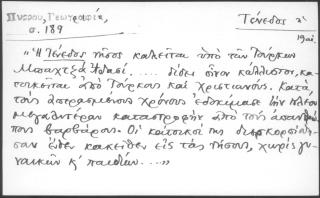 Πνεύρου, Γεωγραφία,
σ. 189
Τένεδος
19αι.
"Ἡ Τένεδος νῆσος καλεῖται ὑπὸ τῶν Τούρκων
Μποχτζά Ἀδασί ..... δίδει οἶνον κάλλιστον, κα-
τοικεῖται ἀπὸ Τούρκους καὶ Χριστιανούς. Κατὰ
τοὺς χρόνους ἐδοκίμασε τὴν πλέον
μεγαλυτέραν καταστροφὴν ἀπὸ τοὺς
βαρβάρους. Οἱ κάτοικοί της διεσκορπίσθη-
σαν ἔνθεν κἀκεῖθεν εἰς τὰς νήσους, χωρὶς γυ-
ναικῶν κ' παιδίων....."